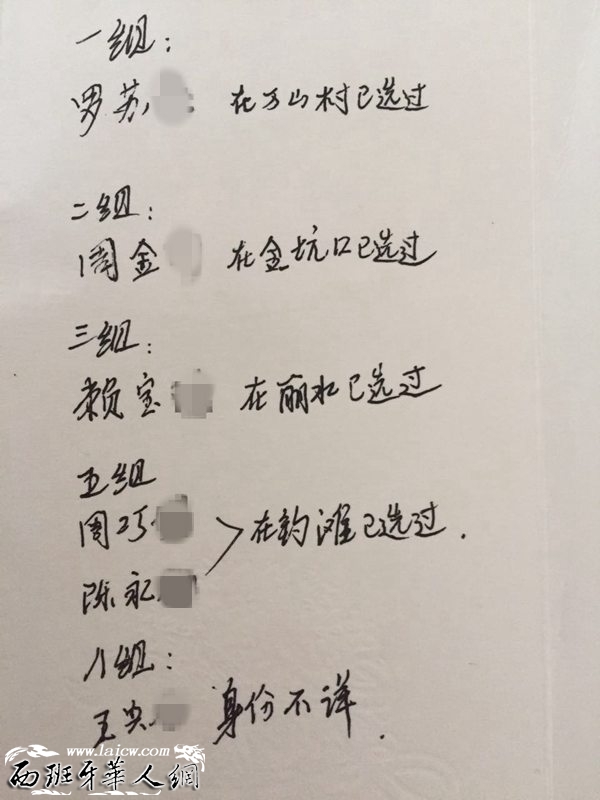 一组：
罗苏 在万山村已选过
二组：
周金 在金坑口已选过
三组：
赖宝 在丽水已选过
五组
周巧
在钓滩已选过.
陈永
八组：
王央 身份不详.
www.laicw.com
西班牙華人網